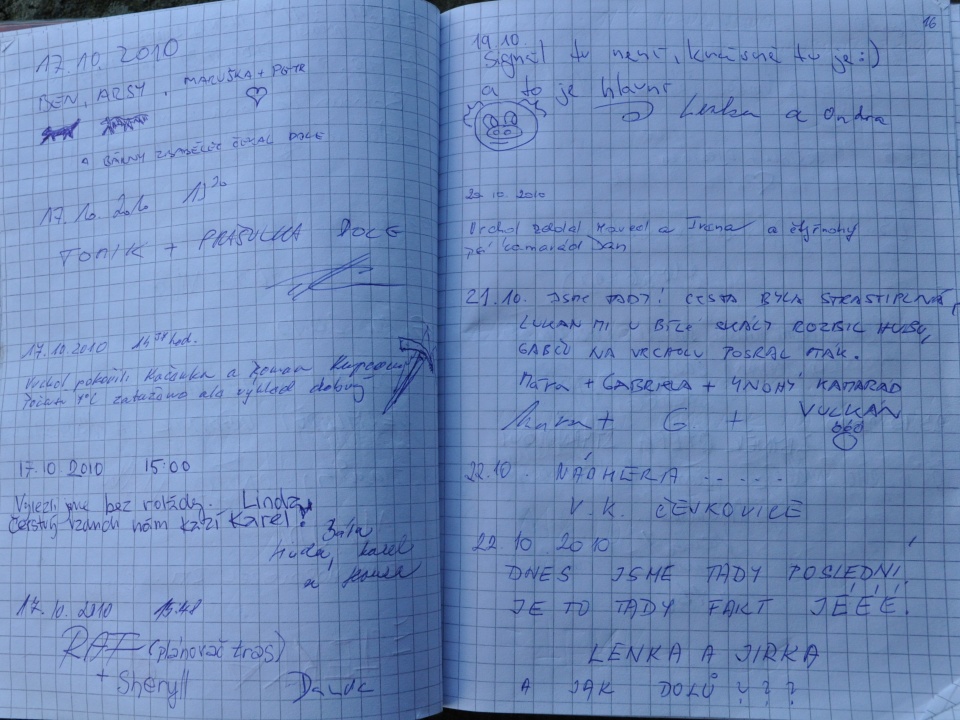 17.10.2010
BEN, ARSY, MARUŠKA + PETR
A ČEKAL DOLE
17.10.2010 13 20
TOMIK + PRAŠULKA DOLE
17.10.2010 14 38 hod.
Vrchol pokořili Kačenka a Roman
1°C zataženo ale výhled dobrý
17.10.2010 15:00
Vylezli jsme bez Linda,
čerstvý vzduch nám kazí Karel!
Bára
Karel
a
17.10.2010 15:48
RAF (plánovač tras)
+ Sheryll
16
19.10
Signál tu není, krásně tu je :)
a to je hlavní
Lenka a Ondra
20.10.2010
Vrchol zdolal a Irena a čtyřnohý
psí kamarád Dan
21.10. JSME TADY! CESTA BYLA STRASTIPLNÁ,
LUKAN MI U BÍLÉ SKÁLY ROZBIL HUBU,
GABČU NA VRCHOLU POSRAL PTÁK.
MÁRA + GABRIELA + 4NOHÝ KAMARÁD
+ G + VULKÁN
22.10. NÁDHERA .....
V.K. ČENKOVICE
22.10 2010
DNES JSME TADY POSLEDNÍ!
JE TO TADY FAKT JÉÉÉ!
LENKA A JIRKA
A JAK DOLŮ ???